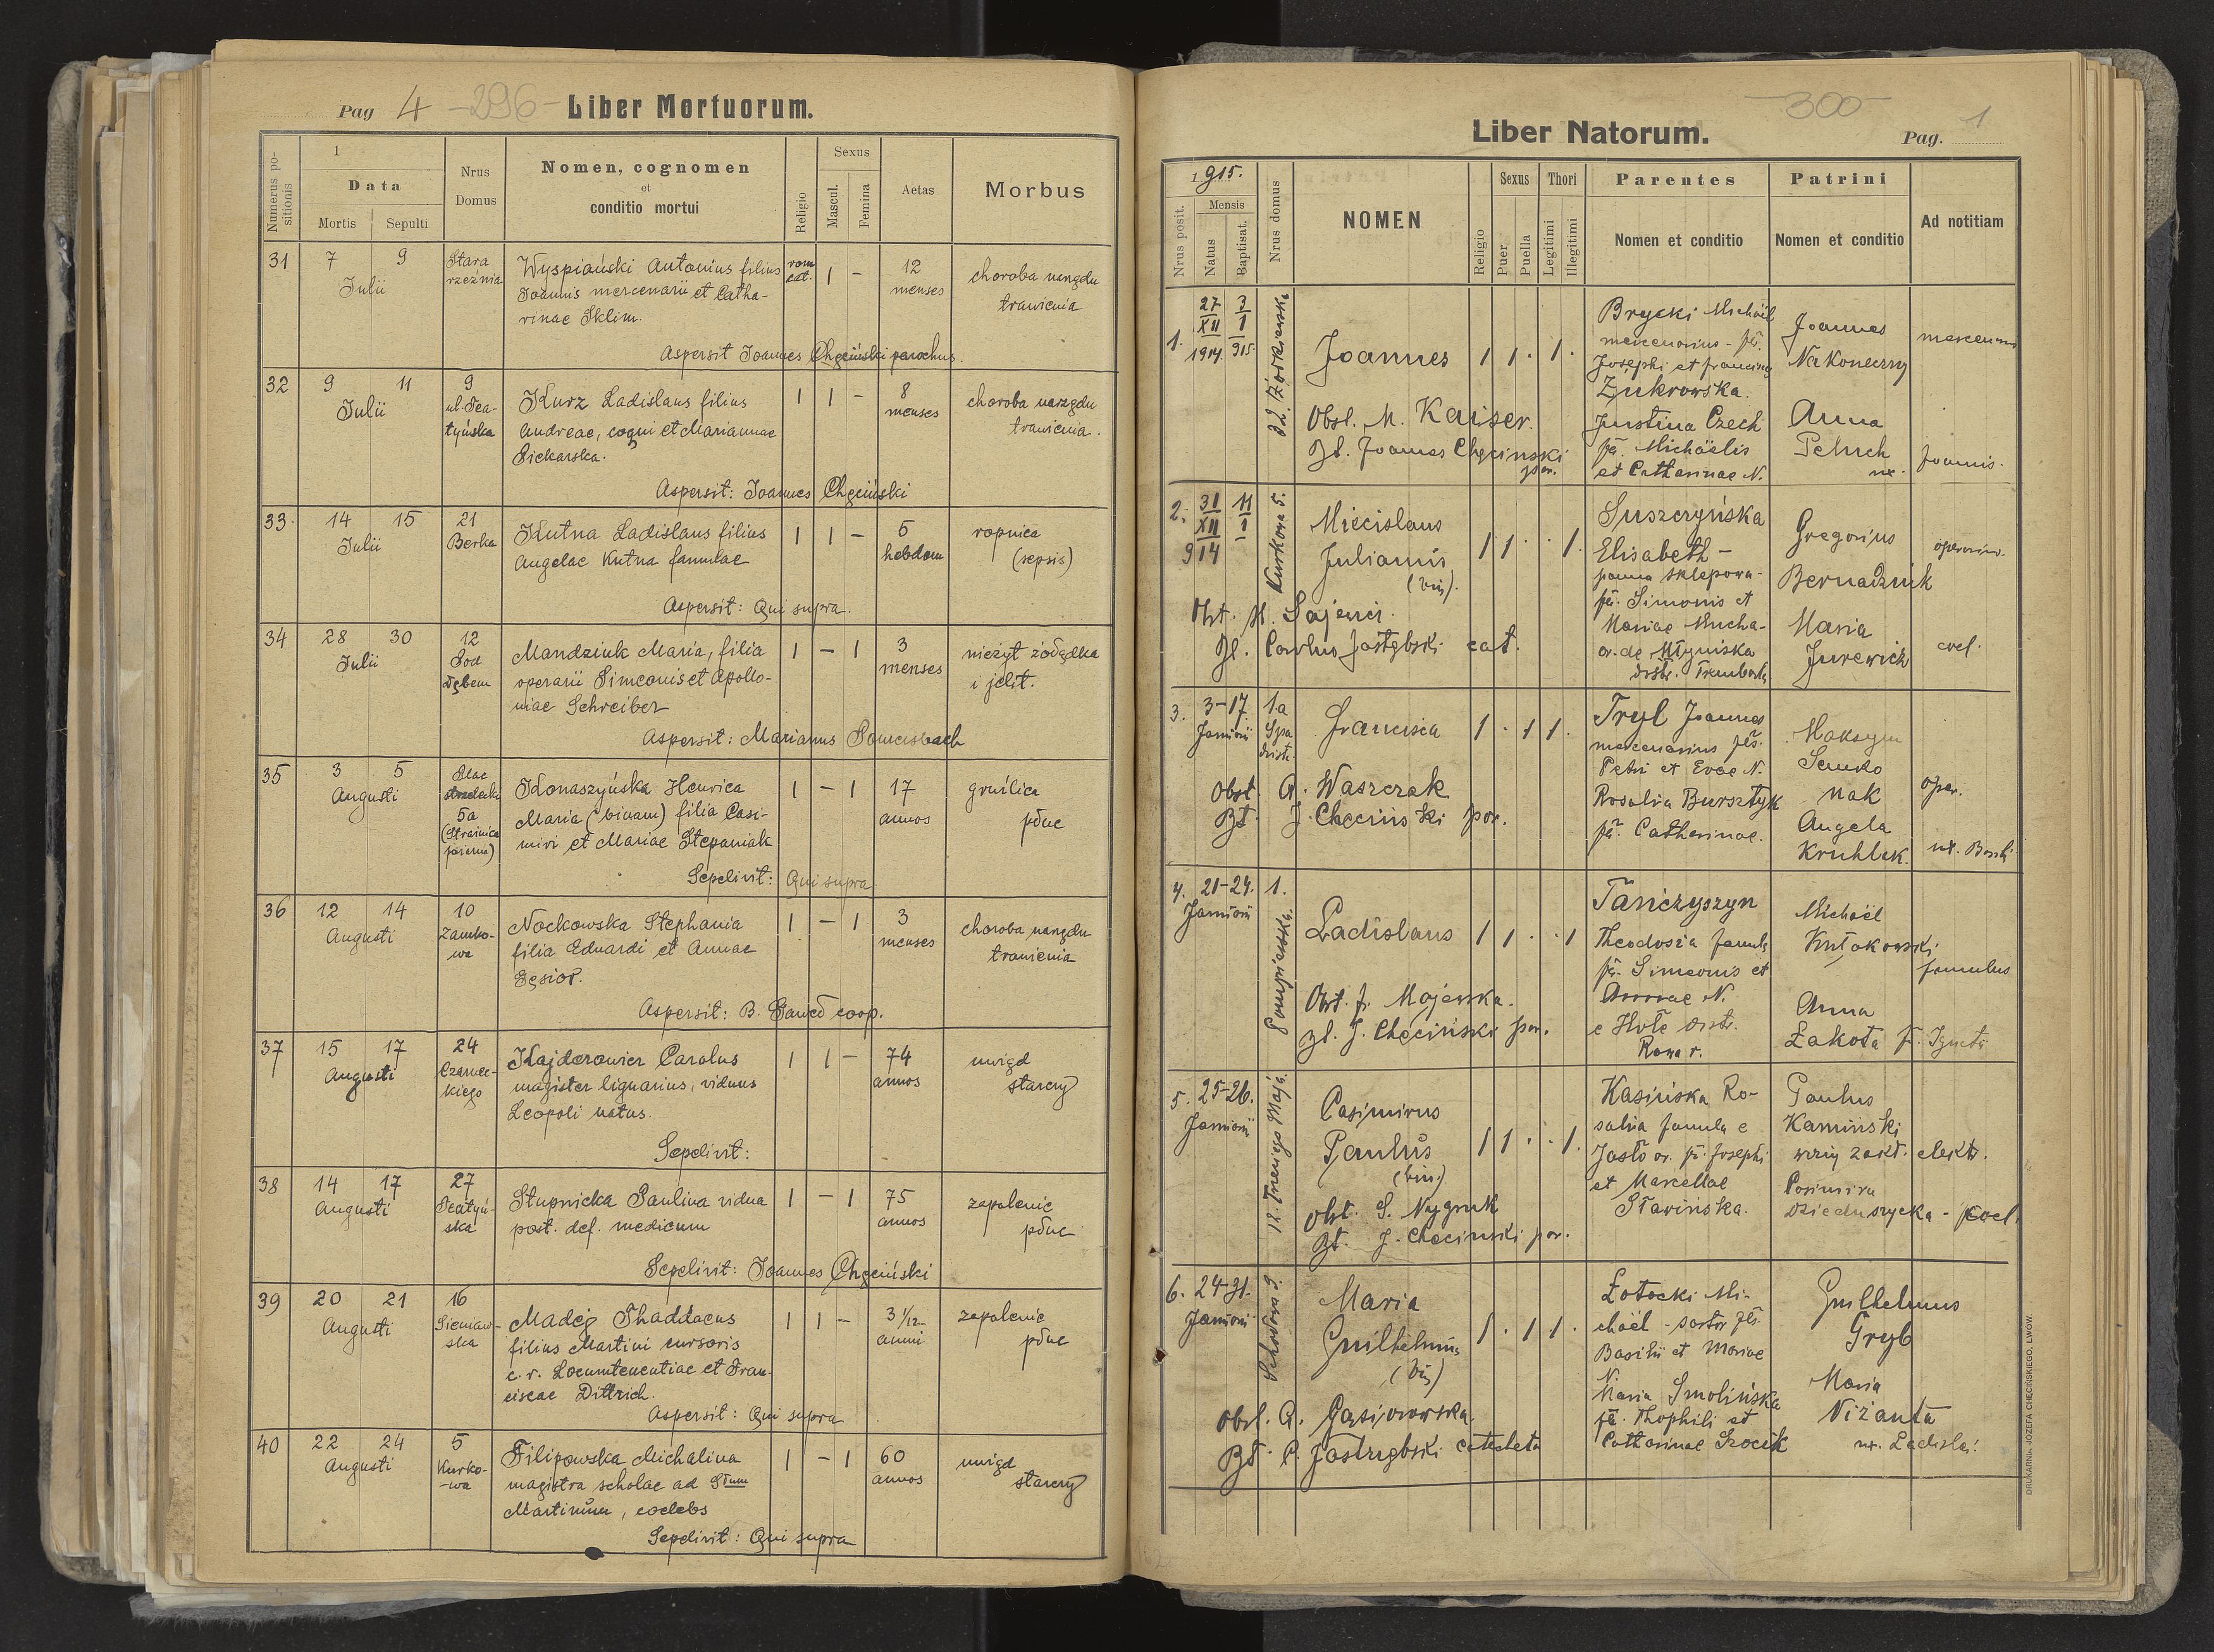 Pag 4 -296- Liber Mortuorum.
Numerus positionis
1
Data
Mortis Sepulti
Nrus Domus
Nomen, cognomen
et
conditio mortui
Religio
Sexus
Mascul. Femina
Aetas
Morbus
31 7 9 Stara Wyspiański Antonius filius rom 1 - 12 choroba narządu
Julii rzeźnia Joannis mercenarii et Catha- cat. menses trawienia
rinae Sklim.
Aspersit Joannes Chęciński parochus.
32 9 11 9 Kurz Ladislaus filius 1 1 - 8 choroba narządu
Julii ul. Tea- Andreae, coqui et Mariannae menses trawienia.
tyńska Piekarska.
Aspersit: Joannes Chęciński
33 14 15 21 Kutna Ladislaus filius 1 1 - 5 ropnica
Julii Berka Angelae Kutna famulae hebdom (sepsis)
Aspersit: Qui supra.
34 28 30 12 Mandziuk Maria, filia 1 - 1 3 nieżyt żołądka
Julii Pod operarii Simeonis et Apollo- menses i jelit.
dębem niae Schreiber
Aspersit: Marianus
35 3 5 Plac Konaszyńska Henrica 1 - 1 17 gruźlica
Augusti strzelecki Maria (binam) filia Casi- annos płuc
5a miri et Mariae Stepaniak
(Strażnica
pożarna)
Sepelivit: Qui supra
36 12 14 10 Nockowska Stephania 1 - 1 3 choroba narządu
Augusti Zamko- filia Eduardi et Annae menses trawienia
wa Gęsior.
Aspersit: B. coop.
37 15 17 24 Kajderowicz Carolus 1 1 - 74 uwiąd
Augusti Czarnec- magister lignarius, viduus annos starczy
kiego Leopoli natus.
Sepelivit:
38 14 17 27 Stupnicka Paulina vidua 1 - 1 75 zapalenie
Augusti Teatyń- post. def. medicum annos płuc
ska
Sepelivit: Joannes Chęciński
39 20 21 16 Madej Thaddaeus 1 1 - 3 1/12 zapalenie
Augusti Sieniaw- filius Martini cursoris anni płuc
ska c. r. Locumtenentiae et Fran-
ciscae Dittrich.
Aspersit: Qui supra
40 22 24 5 Filipowska Michalina 1 - 1 60 uwiąd
Augusti Kurko- magistra scholae ad Stum annos starczy
-wa Martinum, coelebs
Sepelivit: Qui supra
-300-
Liber Natorum. Pag. 1
1915.
Nrus posit.
Mensis
Natus Baptisat.
Nrus domus
NOMEN
Religio
Sexus
Puer Puella
Thori
Legitimi Illegitimi
Parentes
Nomen et conditio
Patrini
Nomen et conditio
Ad notitiam
1. 27 XII 1914. 3 I 915. 32. Żółkiewska Joannes 1 1 . 1 .
Brycki Michaël
mercenarius - fil.
Josephi et Franciscae
Żukrowska.
Justina Czech
fil. Michaëlis
et Catharinae N.
Joannes
Nakoneczny mercenarius
Anna
Peluch
ux. Joannis.
Obst. M. Kaiser.
Bt. Joannes Chęciński
par.
2. 31 XII 914 11 I Kurkowa 5. Miecislaus
Julianus
(bin). 1 1 . . 1.
Suszczyńska
Elisabeth -
panna sklepowa-
fil. Simonis et
Mariae Mucha-
or. de Młyniska
distr. Trembowla
Gregorius
Bernadziuk operarius.
Maria
Jurewich coel.
Obst. H. Sajewicz.
Bt. Paulus Jastrzębski cat.
3. 3-17. 1a
Januarii Spa
drista
Francisca 1 . 1 1 .
Tryl Joannes
mercenarius fil.
Petri et Evae N.
Rosalia Bursztyk
fil. Catharinae.
Maksym
Senko
Mak oper.
Angela
Kruhlek. ux. Basili
Obst. A. Waszczak
Bt. J. Chęciński par.
4. 21-24. 1.
Januarii Ladislaus 1 1 . . 1
Tańczyszyn
Theodosia famula
fil. Simeonis et
Annae N.
e Hołe distr.
Rawa r.
Michaël
Kułakowski
famulus
Anna
Łakota f. Ignatii
Obst. J. Majewska.
Bt. J. Chęciński par.
5. 25-26. 12. Trzeciego Maja.
Januarii Casimirus
Paulus
(bin.) 1 1 . . 1.
Kasińska Ro-
salia famula e
Jasło or. fil. Josephi
et Marcellae
Stawińska.
Paulus
Kamiński
woźny zakł. elektr.
Casimira
Dzieduszycka - coel.
Obst. S. Nygruk
Bt. J. Chęciński par.
6. 24-31.
Januarii Maria
Guilhelmina
(bin) 1 . 1 1 .
Łotocki Mi-
chaël - sartor fil.
Basilii et Mariae
N.
Maria Smolińska
fil. Theophili et
Catharinae Szocik
Guilhelmus
Gryb
Maria
Niżanta
ux. Ladislai.
Obst. A. Gąsiorowska.
Bt. P. Jastrzębski catecheta
DRUKARNI. JÓZEFA CHĘCIŃSKIEGO, LWÓW